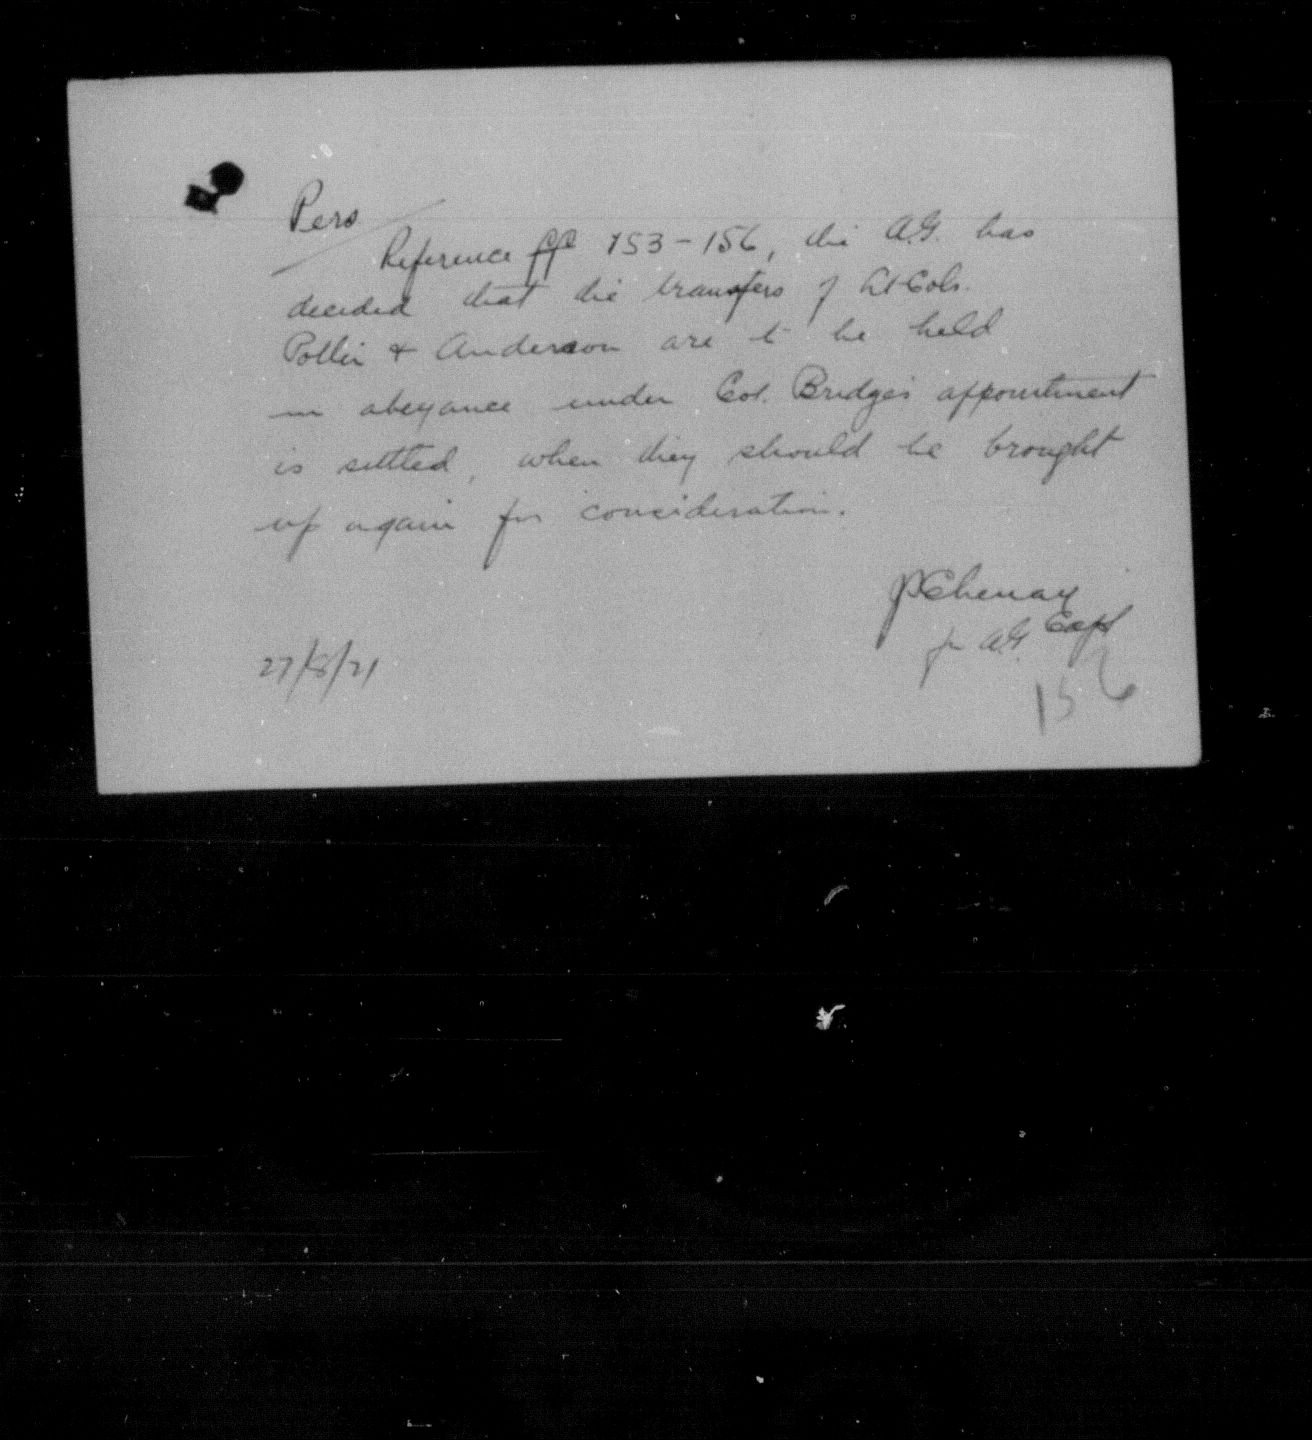 Pers
Reference pp 153-156, the A.G. has
decided that the transfers of Lt Cols.
& Anderson are to be held
in abeyance under Col. Bridge's appointment
is settled, when they should be brought
up again for consideration.
Capt
for AG
27/8/21
156